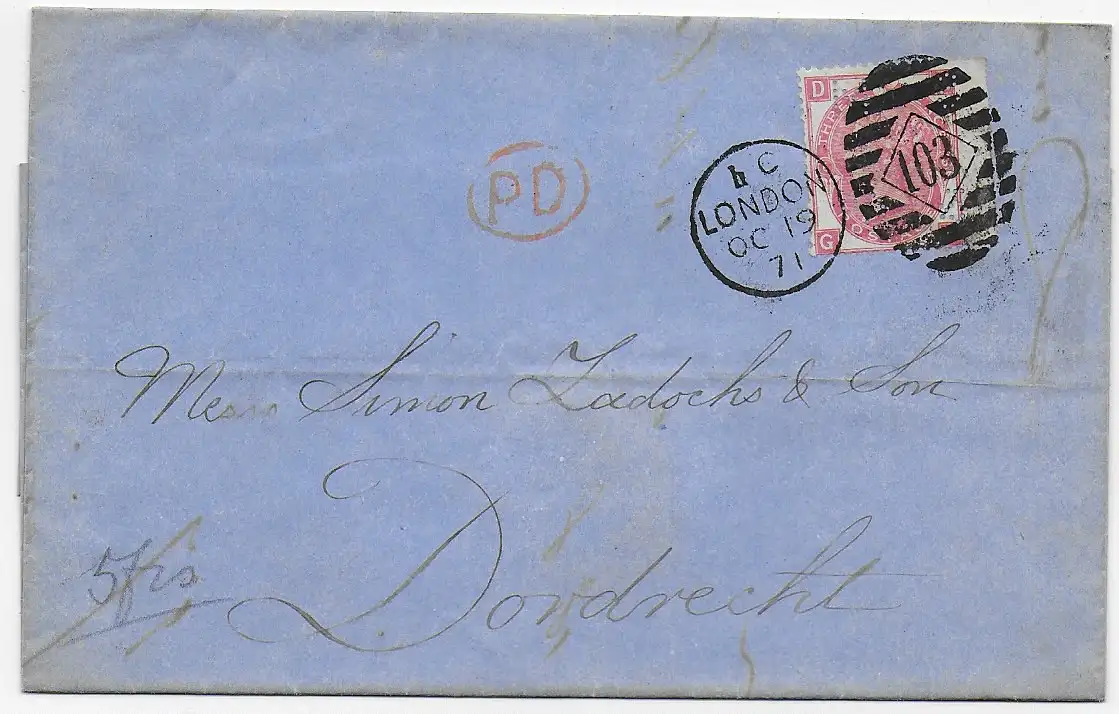 D
THREE
G
PD
h C
LONDON
OC 19
71
103
Messrs Simon Zadochs & Son
Dordrecht